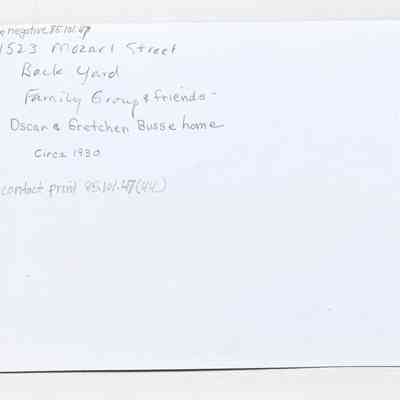 negative 85.101.47
1523 Mozart Street
Back Yard
Family Group & friends -
Oscar & Gretchen Busse home
Circa 1930
contact print 85.101.47(44)